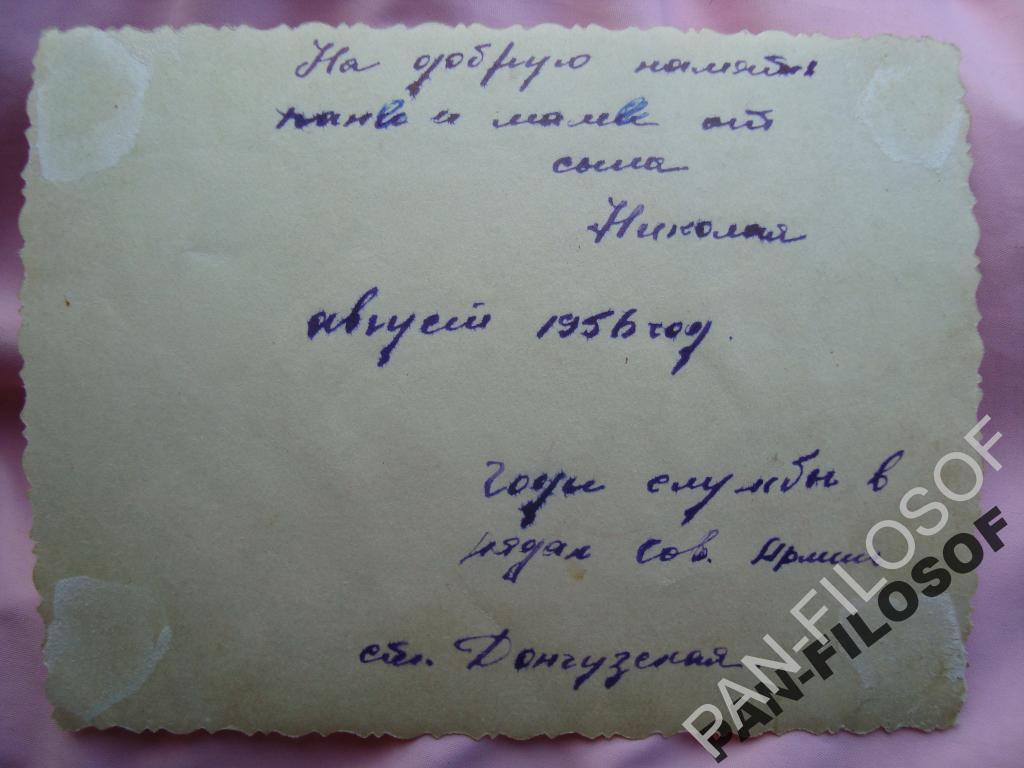 На добрую память
папе и маме от
сына
Николая
август 1956 год.
Годы службы в
рядах Сов. Армии
ст. Донгузская
PAN-FILOSOF
PAN-FILOSOF